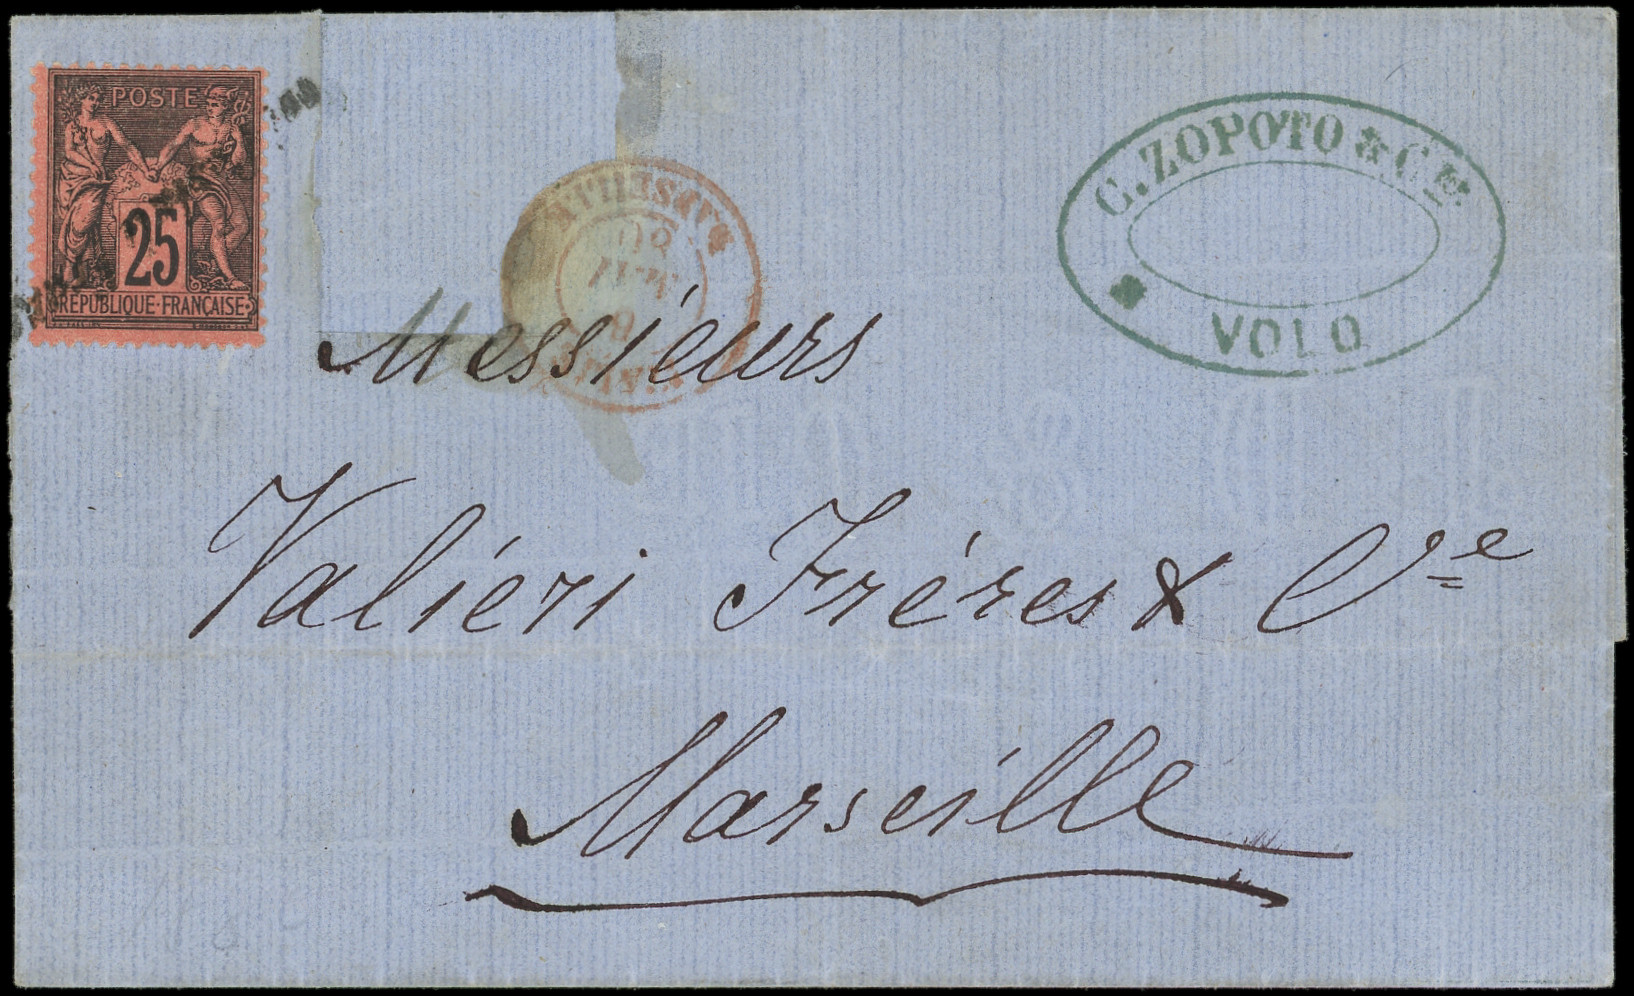 POSTE
25
RÉPUBLIQUE·FRANÇAISE
C. ZOPOTO & CIE
VOLO
Messieurs
Valiéri Fréres & Cie
Marseille